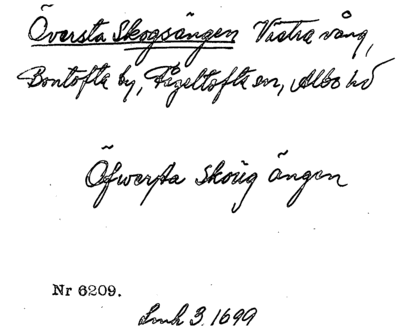 Översta Skogsängen Västra vång,
Bontofta by, Fågeltofta sn, Albo hd
Öfwersta Skoug ängen
Nr 6209.
Lmh 3. 1699